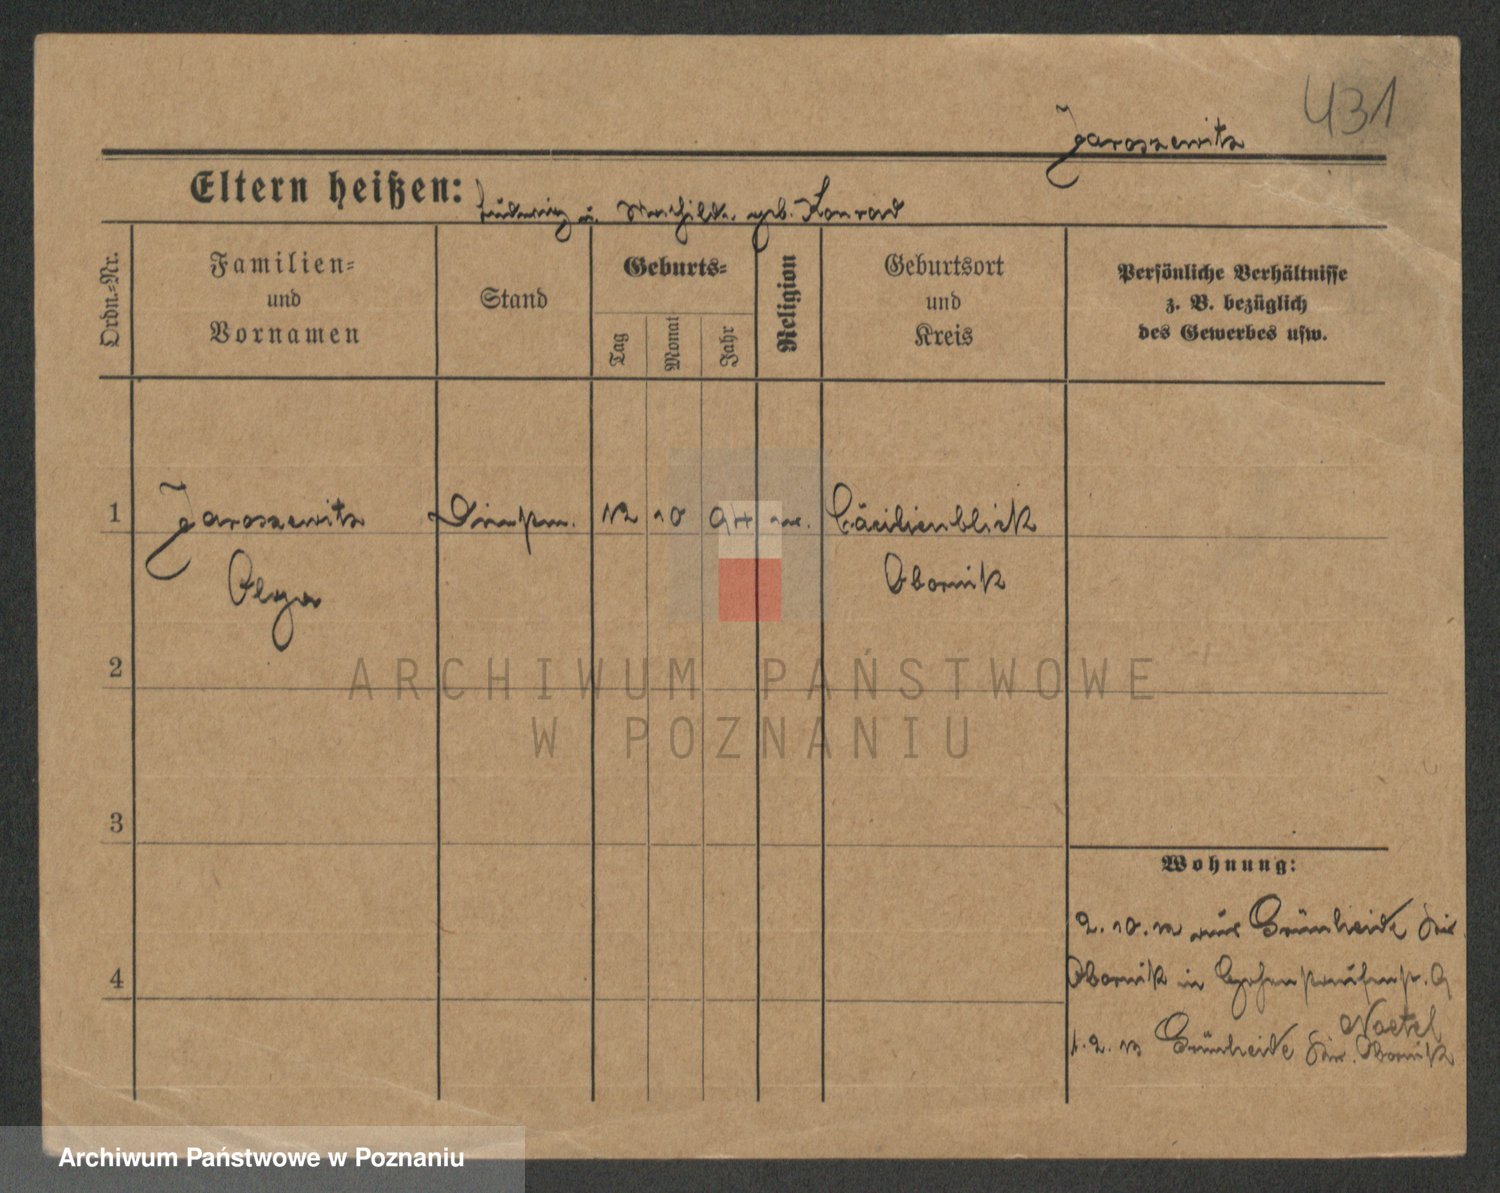 431
Jaroszewitz
Eltern heißen: Ludwig u. Mathilde geb. Konrad
Ordn.-Nr.
Familien-
und
Vornamen
Stand
Geburts-
Tag
Monat
Jahr
Religion
Geburtsort
und
Kreis
Persönliche Verhältnisse
z. B. bezüglich
des Gewerbes usw.
1 Jaroszewitz 12 10 94 Cäcilienblick
Olga Obornik
2
3
4
Wohnung:
2. 10. 12 aus Grünheide
Obornik in
Noetel
1. 2. 13 Grünheide Obornik
ARCHIWUM PAŃSTWOWE
W POZNANIU
Archiwum Państwowe w Poznaniu